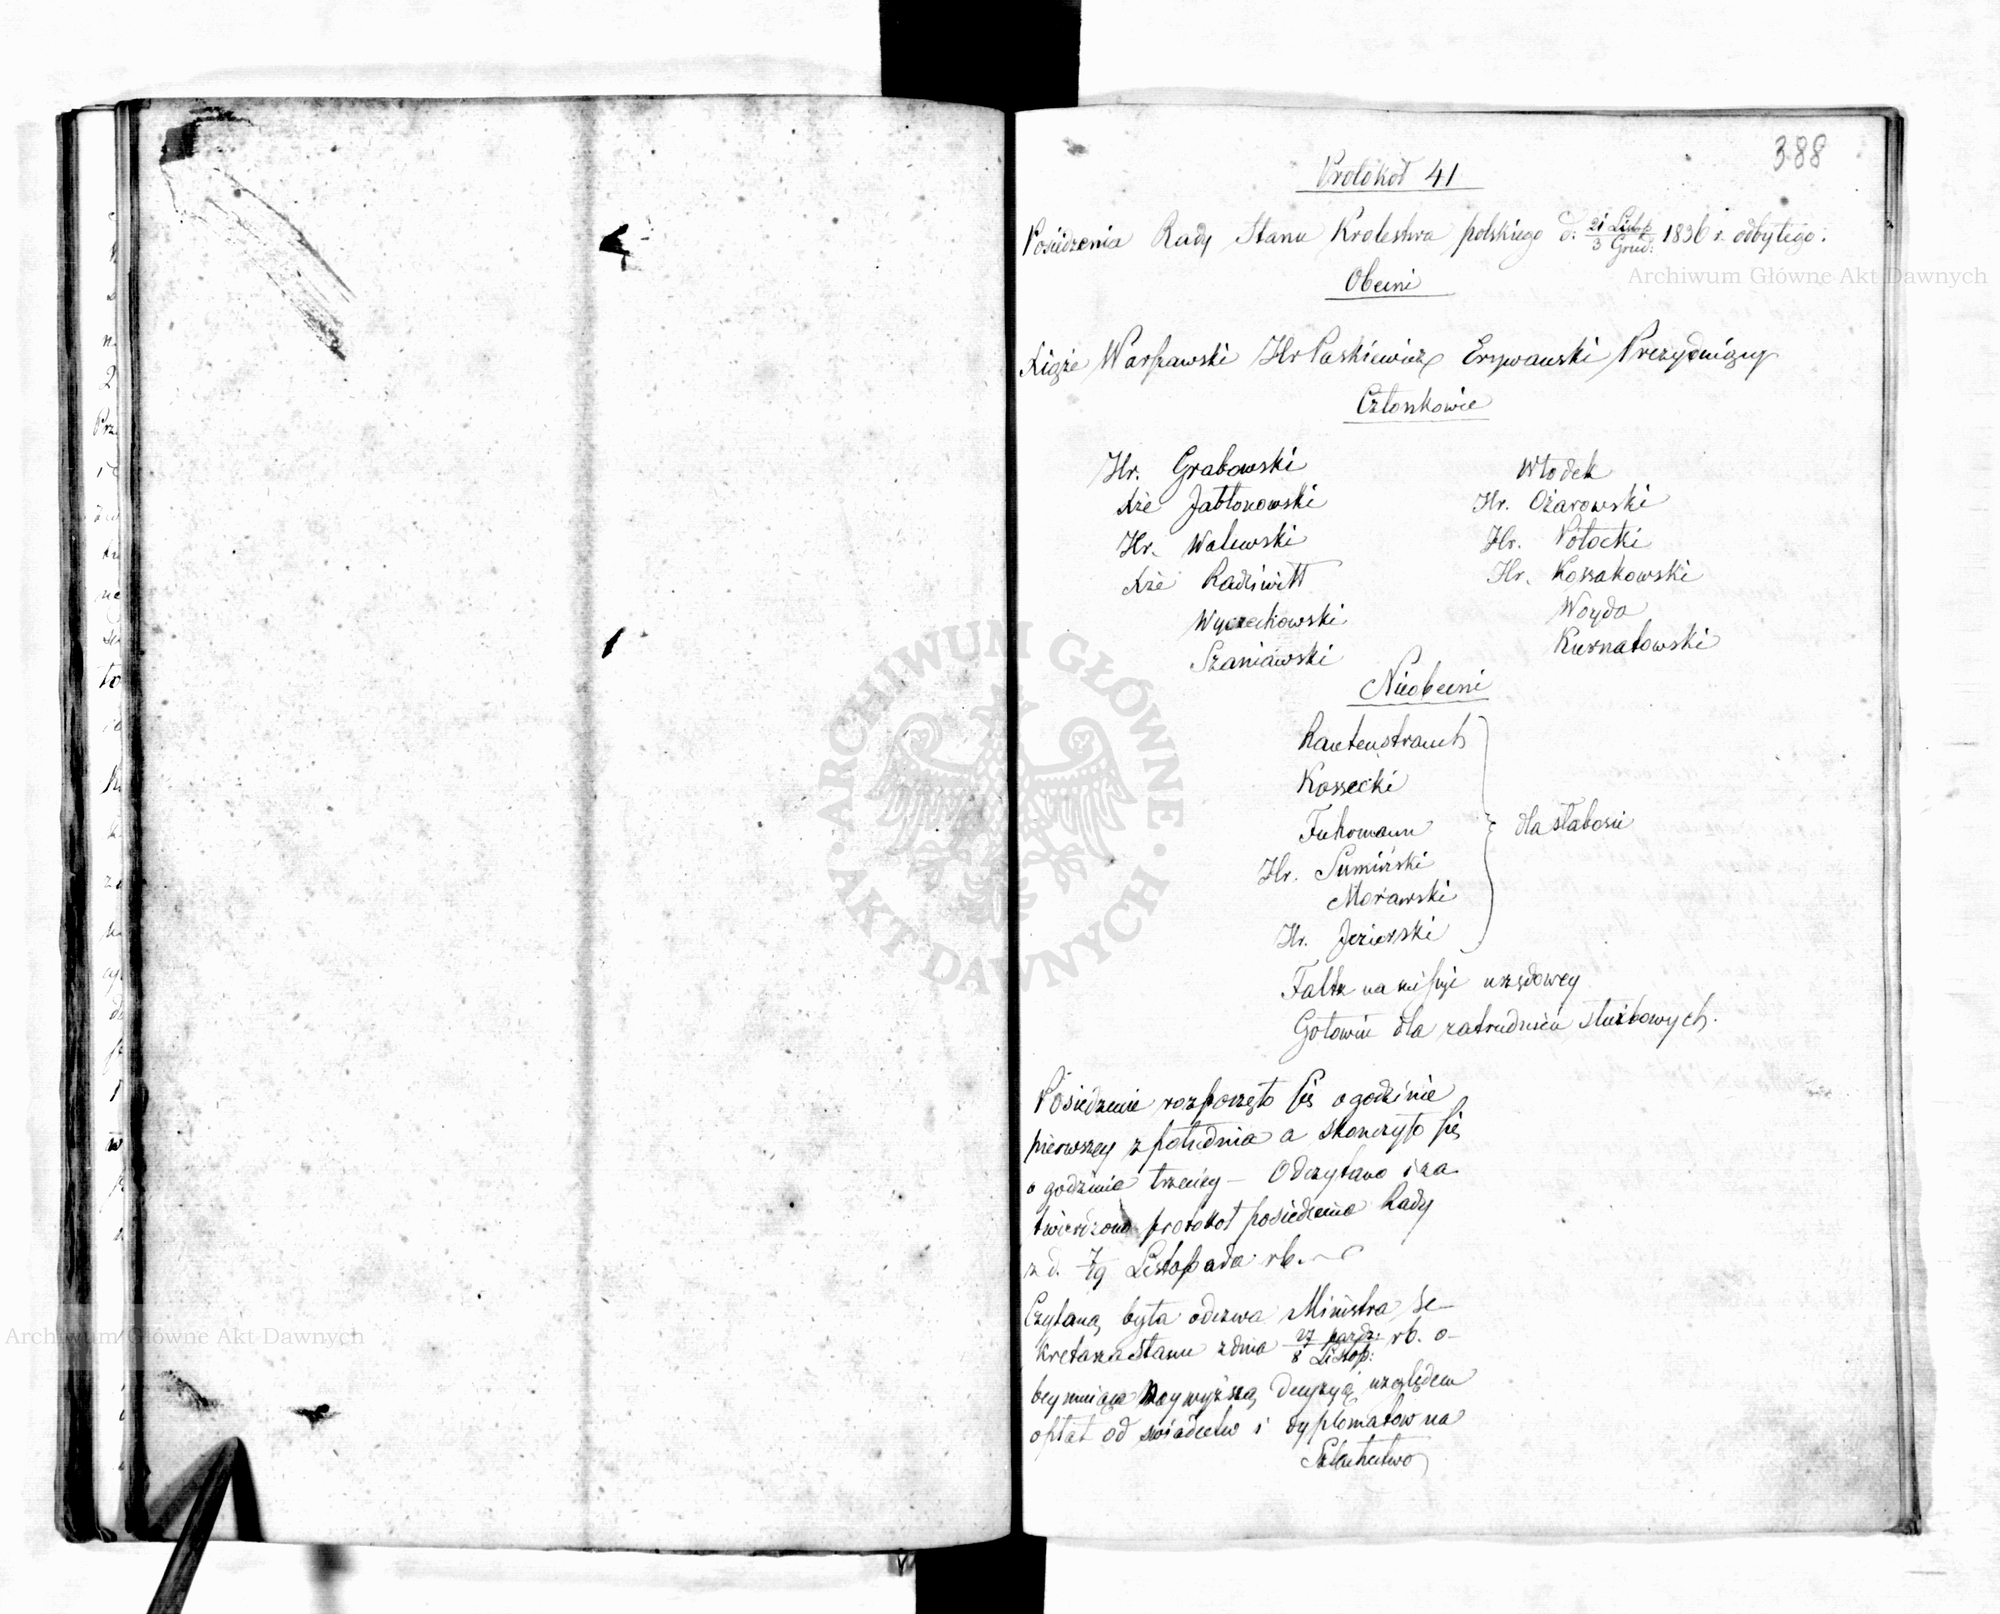 388
Protokół 41
Posiedzenia Rady Stanu Krolestwa polskiego d: 21 Listop / 3 Grud: 1836 r. odbytego.
Obecni
Xiąże Warszawski Hr Paskiewicz Erywański Prezydujący
Członkowie
Hr. Grabowski
Xże Jabłonowski
Hr. Walewski
Xże Radziwiłł
Wyczechowski
Szaniawski
Włodek
Hr. Ożarowski
Hr. Potocki
Hr. Kossakowski
Woyda
Kurnatowski
Nieobecni
Rautenstrauch
Kossecki
Fuhrmann
Hr. Sumiński
Morawski
Hr. Jezierski
dla słabości
Faltz na missyi urzędowey
Gołowin dla zatrudnień służbowych.
Posiedzenie rozpoczęło się o godzinie
pierwszey z południa a skonczyło się
o godzinie trzeciey – Odczytano i za
twierdzono protokół posiedzenia Rady
z d. 7/19 Listopada rb.
Czytaną była odezwa Ministra Se-
kretarza Stanu z dnia 27 paźdz: / 8 Listop: rb. o-
beymuiąca Naywyższą decyzyą względem
opłat od świadectw i dyplomatow na
Szlachectwo
Archiwum Główne Akt Dawnych
Archiwum Główne Akt Dawnych
ARCHIWUM GŁÓWNE · AKT DAWNYCH ·